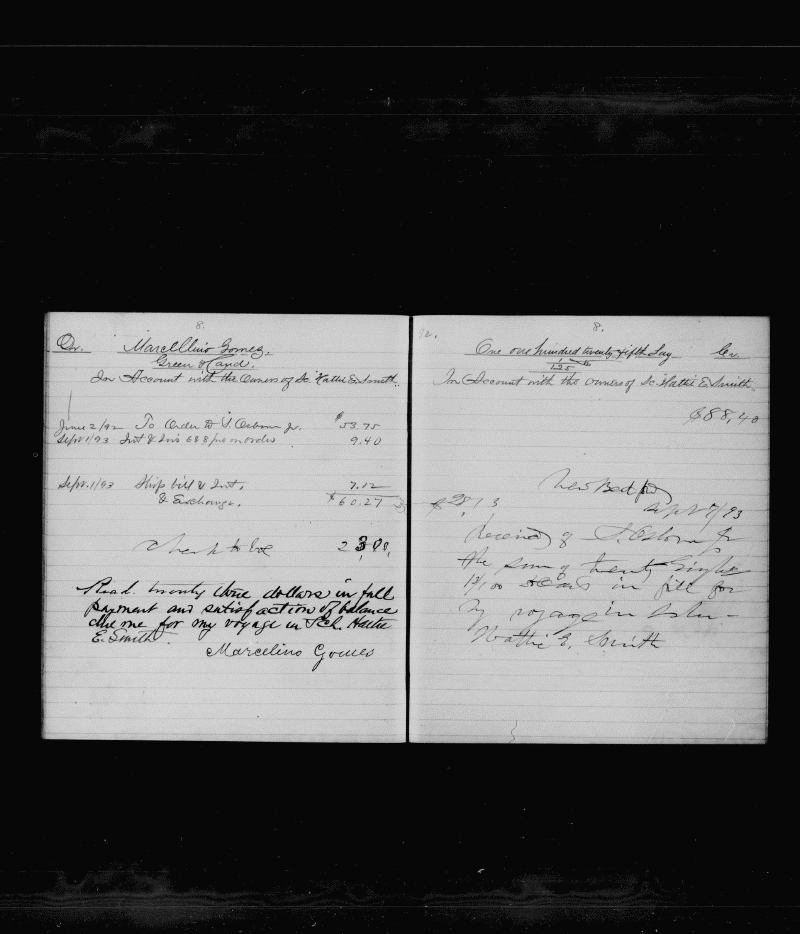 8.
Dr. Marcelllino Gomez,
Green Hand.
In Account with the Owners of Sc. Hattie E. Smith.
June 2/92 To Order to S. Osborn Jr. $53.75
Sept. 1/93 Int & Ins on order 9.40
Sept. 1/93 Ship bill & Int. 7.12
& Exchange. $60.27
Check to bal 23.00
Read. twenty three dollars in full
payment and satisfaction of balance
due me for my voyage in Sch. Hattie
E. Smith
Marcelino Gomes
12. 8.
One one hundred twenty fifth Lay Cr.
1/125
In Account with the owners of Sc Hattie E. Smith.
$88,40
New Bedford
$28 13 Sept 7/93
Received of S. Osborn Jr
the sum of twenty Eight
13/100 in full for
my voyage in
Hattie E. Smith